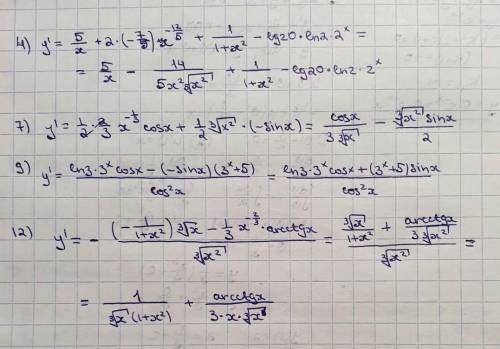 4) y' = 5/x + 2·(-7/5) x^(-12/5) + 1/(1+x²) - lg20·ln2·2^x =
= 5/x - 14/(5x²⁵√x²) + 1/(1+x²) - lg20·ln2·2^x
7) y' = 1/2·2/3 x^(-1/3) cosx + 1/2 ³√x²·(-sinx) = cosx/(3 ³√x) - ³√x² sinx/2
9) y' = (ln3·3^x cosx - (-sinx)(3^x+5))/cos²x = (ln3·3^x cosx + (3^x+5) sinx)/cos²x
12) y' = - ((-1/(1+x²)) ³√x - 1/3 x^(-2/3)·arcctgx)/³√x² = (³√x/(1+x²) + arcctgx/(3 ³√x²))/³√x² =
= 1/(³√x (1+x²)) + arcctgx/(3·x·³√x)